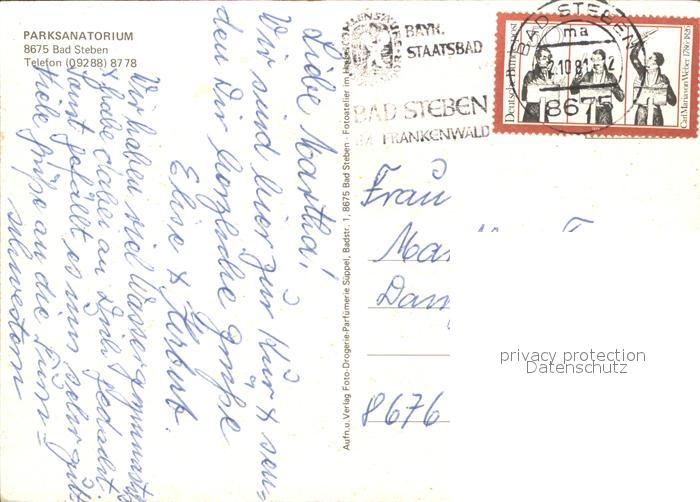 PARKSANATORIUM
8675 Bad Steben
Telefon (09288) 8778
Liebe Martha!
Wir sind hier zur Kur & sen=
den Dir herzliche Grüße
Elise & Herbert.
Wir haben viel Wassergymnastik
& habe dabei an Dich gedacht.
Sonst gefällt es uns sehr gut
Viele Grüße an die Turn=
schwestern
Aufn. u. Verlag Foto-Drogerie-Parfümerie Süppel, Badstr. 1, 8675 Bad Steben - Fotoatelier im Haus
BAYR.
STAATSBAD
BAD STEBEN
IM FRANKENWALD
BAD STEBEN
ma
2.10.81
8675
Deutsche Bundespost
Carl Maria von Weber 1786-1826
Frau
8676
privacy protection
Datenschutz